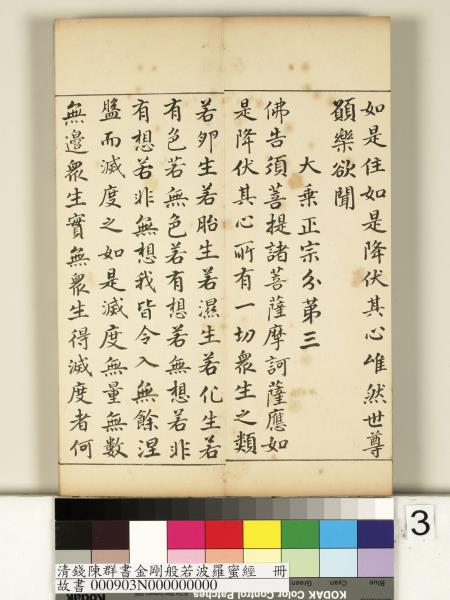 如是住如是降伏其心唯然世尊
願樂欲聞
大乘正宗分第三
佛告須菩提諸菩薩摩訶薩應如
是降伏其心所有一切衆生之類
若卵生若胎生若濕生若化生若
有色若無色若有想若無想若非
有想若非無想我皆令入無餘涅
盤而滅度之如是滅度無量無數
無邊衆生實無衆生得滅度者何
3
清錢陳群書金剛般若波羅蜜經　冊
故書 000903N000000000
Blue Cyan Green
KODAK Color Control Patches